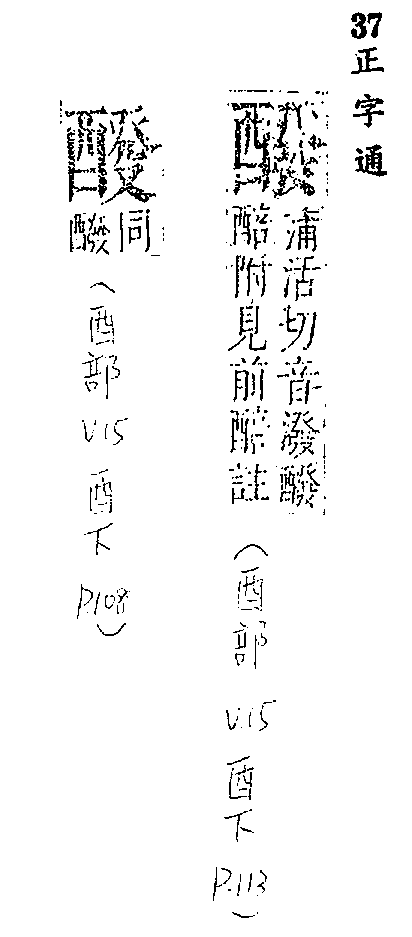 37正字通
醱
浦活切音潑醱
醅附見前醅註
(酉部 V.15 酉下 P.113)
同
醱
(酉部 V.15 酉下 P.108)